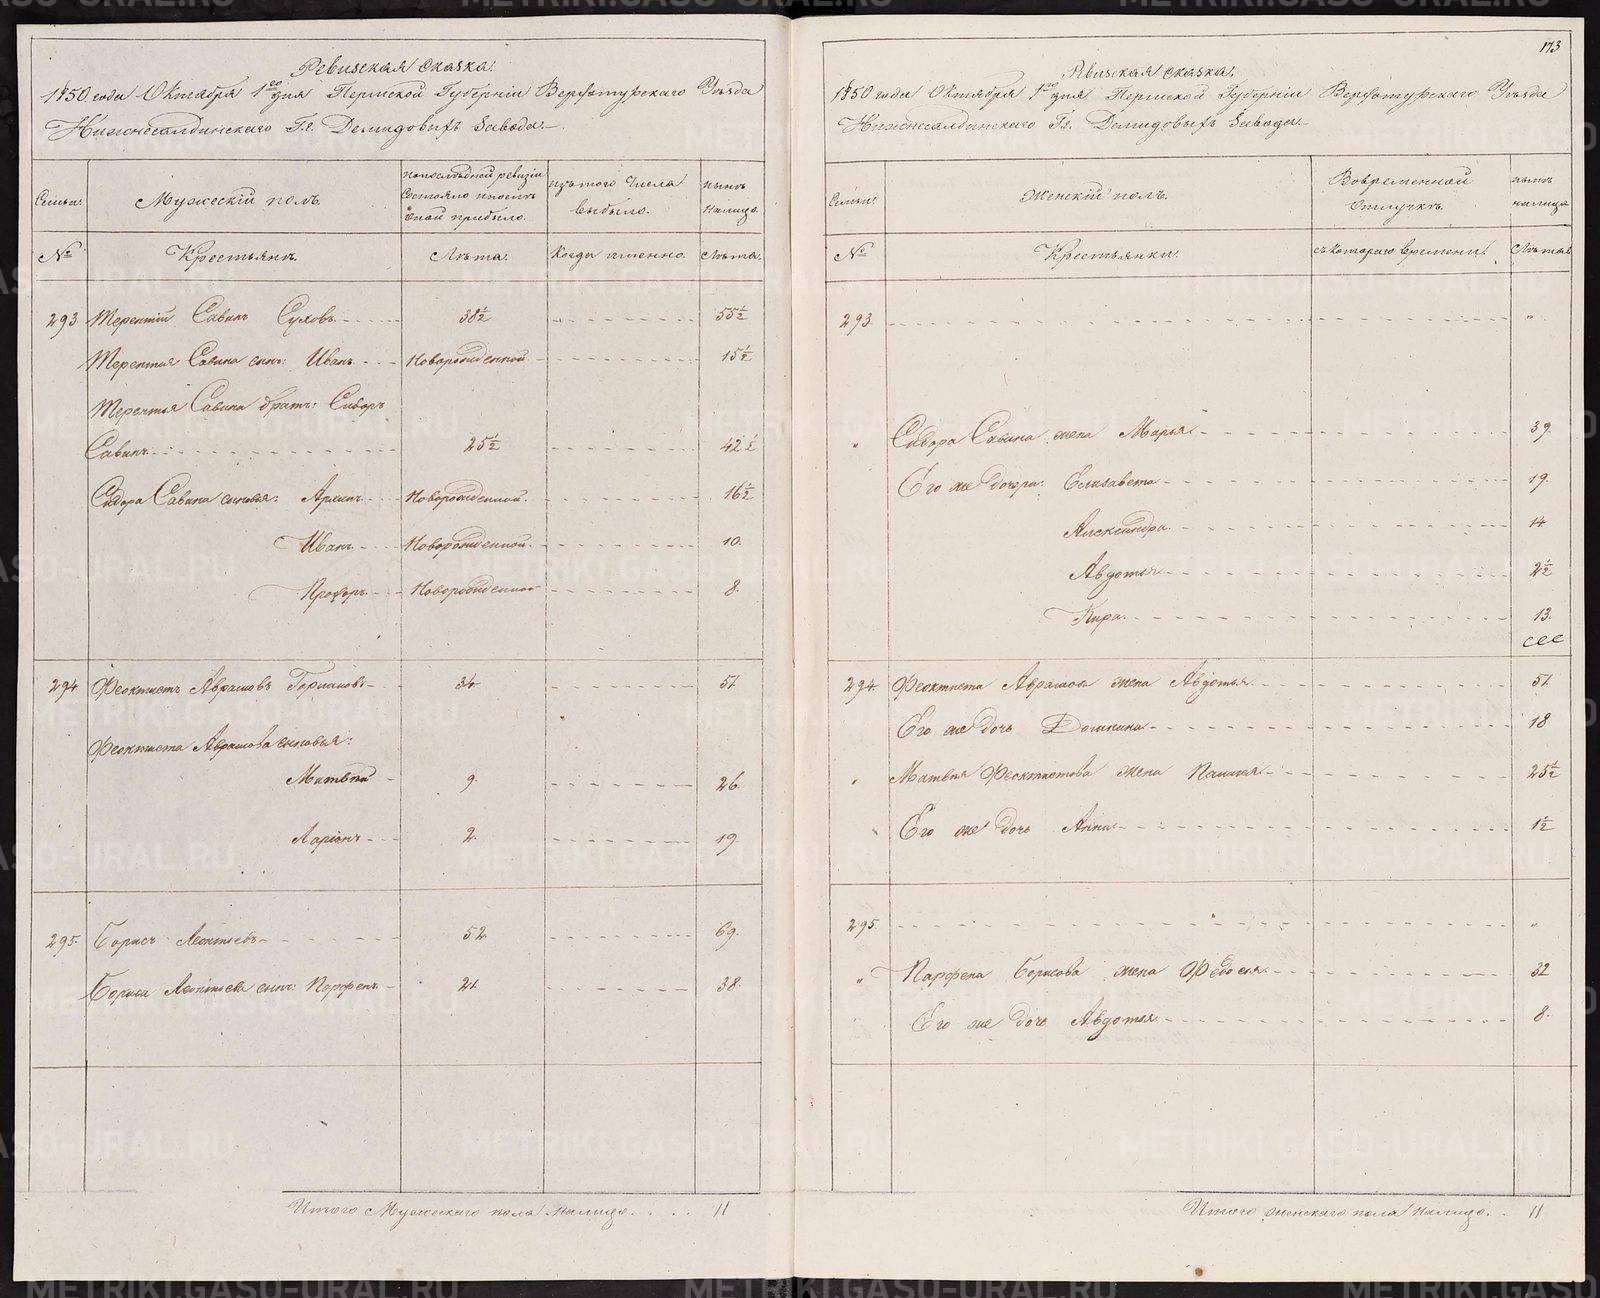 Ревизская сказка.
1850 года Октября 1го дня Пермской Губерніи Верхотурскаго Уѣзда
Нижнесалдинскаго Гг. Демидовыхъ Завода.
Семьи.
Мужескій полъ.
по последней ревизіи
состояло и после
оной прибыло.
изъ того числа
выбыло.
нынѣ
налицо.
№
Крестьянъ.
Лѣта.
Когда именно.
Лѣта.
293 Терентій Савинъ Суховъ 38½ 55½
Терентія Савина сынъ: Иванъ Новорожденной 15½
Терентья Савина братъ: Сидоръ
Савинъ 25½ 42½
Сидора Савина сыновья: Архипъ Новорожденной. 16½
Иванъ Новорожденной. 10.
Прохоръ Новорожденной 8.
294 Феоктистъ Аврамовъ 34 51
Феоктиста Аврамова сыновья:
Матвѣй 9. 26
Ларіонъ 2. 19
295. Борисъ Леонтьевъ 52 69.
Бориса Леонтьева сынъ: Парфенъ 21 38
Итого Мужескаго пола налицо. 11
173
Ревизская сказка.
1850 года Октября 1го дня Пермской Губерніи Верхотурскаго Уѣзда
Нижнесалдинскаго Гг. Демидовыхъ Завода.
Семьи.
Женскій полъ.
Во временной
отлучкѣ.
нынѣ
налицо
№
Крестьянки.
съ котораго времени.
Лѣта.
293. "
" Сидора Савина жена Марья 39.
Его же дочери: Елизавета 19.
Александра 14
Авдотья 2½
Кира. 13.
294. Феоктиста Аврамова жена Авдотья 51
Его же дочь Домнина 18
" Матвѣя Феоктистова жена Палагея 25½
Его же дочь Анна 1½
295. "
" Парфена Борисова жена Федосья 32
Его же дочь Авдотья 8.
Итого женскаго пола налицо. 11
METRIKI.GASO-URAL.RU